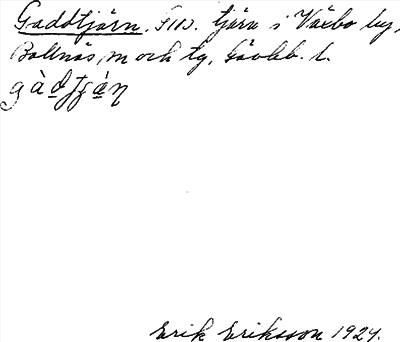 Gaddtjärn. Fno. tjärn i Växbo by,
Bollnäs, m och tg, Gävleb. l.
gàd̲tʃa̲n
Erik Eriksson 1924.